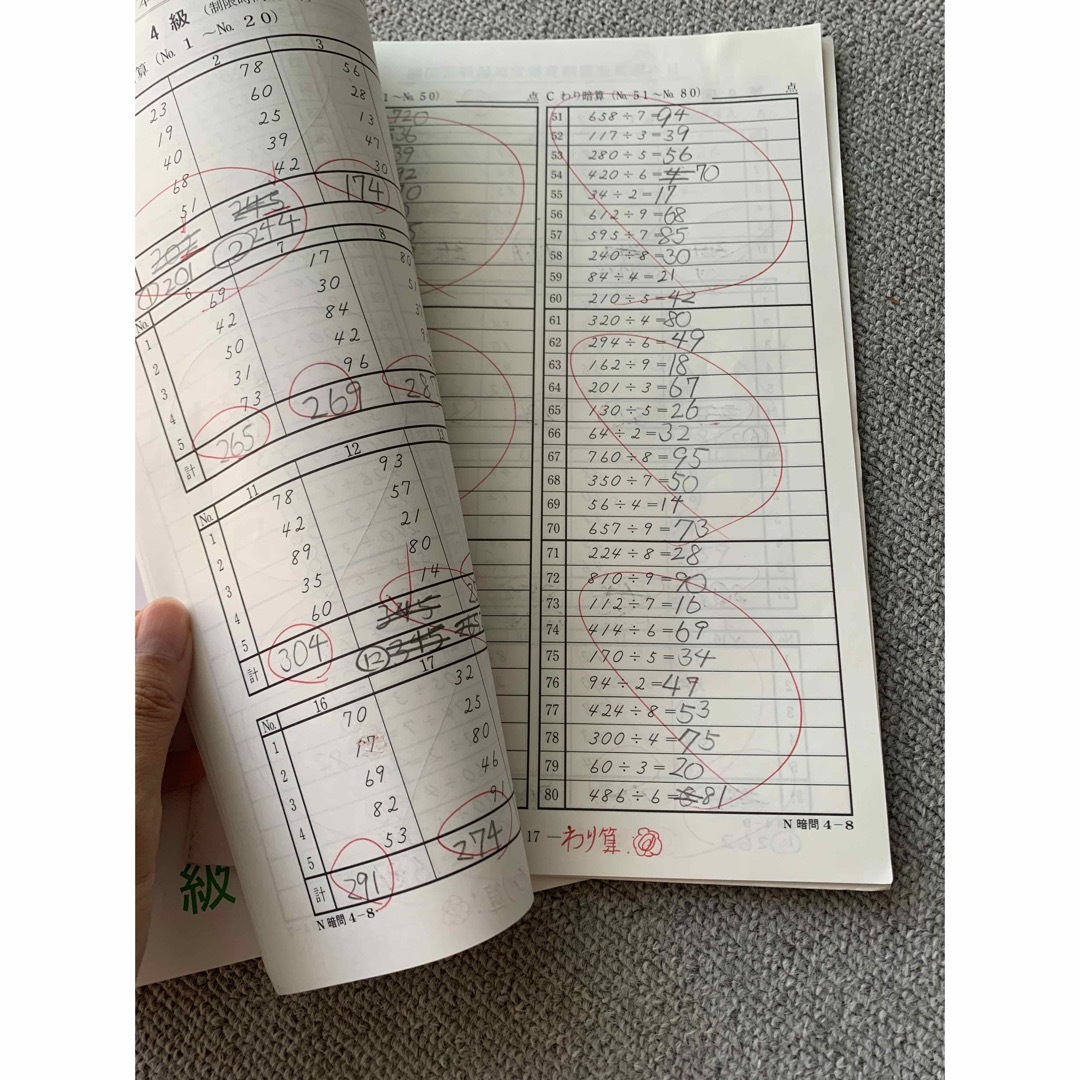 4 級 (制限時
算 (No. 1 ～No. 20)
2 3
23 78 56
19 60 28
40 25 13
68 39 47
51 42 30
202 245 174
①201 ②244
No. 6 7 8
1 69 17 80
2 42 30 51
3 50 84
4 31 42
5 73 96
計 265 269 287
No. 11 12 13
1 78 93
2 42 57
3 89 21
4 35 80
5 60 14
計 304 245
⑫345
No. 16 17
1 70 32
2 17 25
3 69 80
4 82 46
5 53 91
計 291 274
N 暗問 4－8
級
1～No. 50) 点
720
536
39
92
C わり暗算 (No. 51～No. 80) 点
51 658÷7=94
52 117÷3=39
53 280÷5=56
54 420÷6=4 70
55 34÷2=17
56 612÷9=68
57 595÷7=85
58 240÷8=30
59 84÷4=21
60 210÷5=42
61 320÷4=80
62 294÷6=49
63 162÷9=18
64 201÷3=67
65 130÷5=26
66 64÷2=32
67 760÷8=95
68 350÷7=50
69 56÷4=14
70 657÷9=73
71 224÷8=28
72 810÷9=90
73 112÷7=16
74 414÷6=69
75 170÷5=34
76 94÷2=47
77 424÷8=53
78 300÷4=75
79 60÷3=20
80 486÷6=8 81
N 暗問 4－8
17 — わり算.